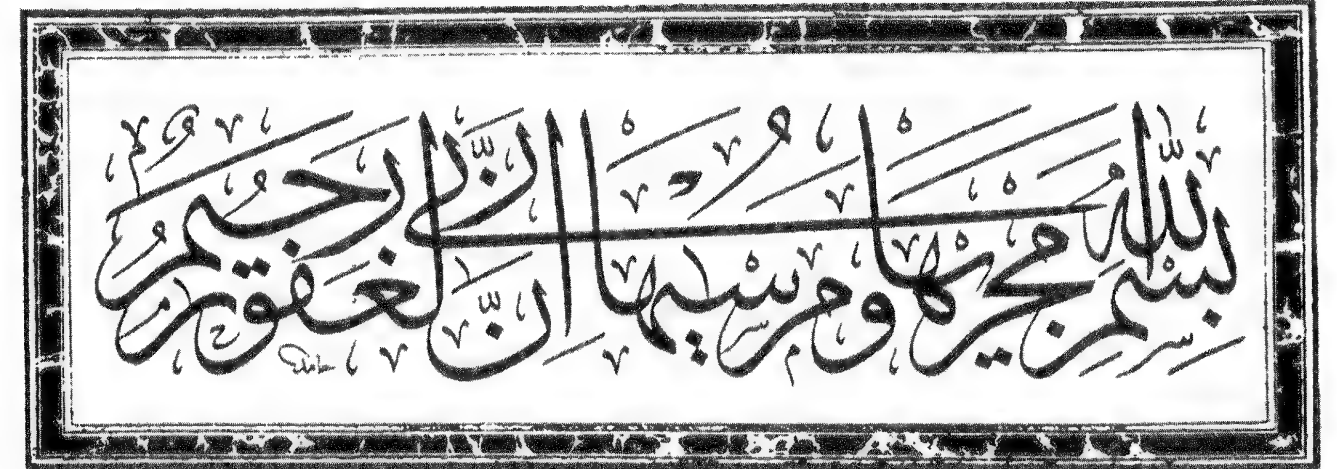 بِسْمِ اللّٰهِ مَجْرٰۭىهَا وَمُرْسٰىهَا اِنَّ رَبّ۪ى لَغَفُورٌ رَح۪يمٌ